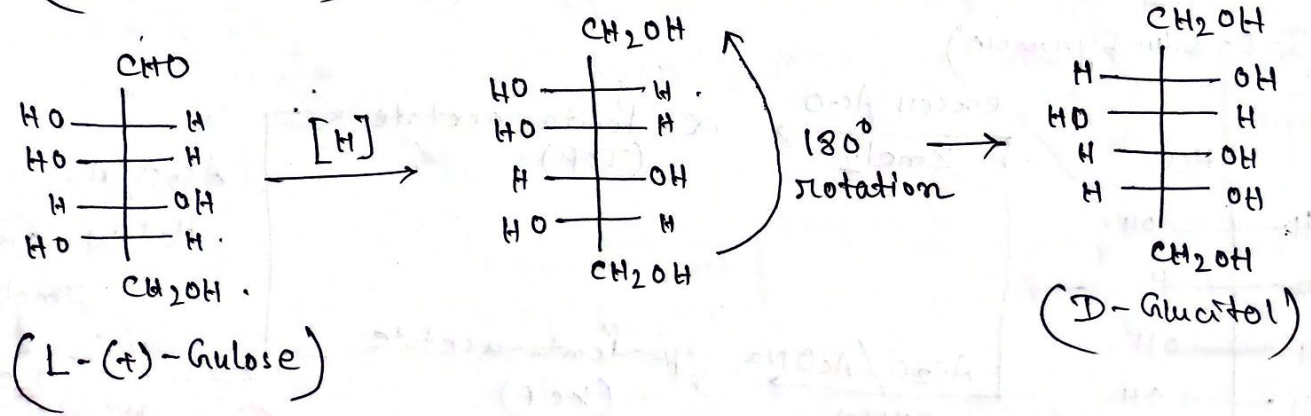 CHO
HO H
HO H
H OH
HO H
CH2OH
(L-(+)-Gulose)
[H]
CH2OH
HO H
HO H
H OH
HO H
CH2OH
180° rotation
CH2OH
H OH
HO H
H OH
H OH
CH2OH
(D-Glucitol)